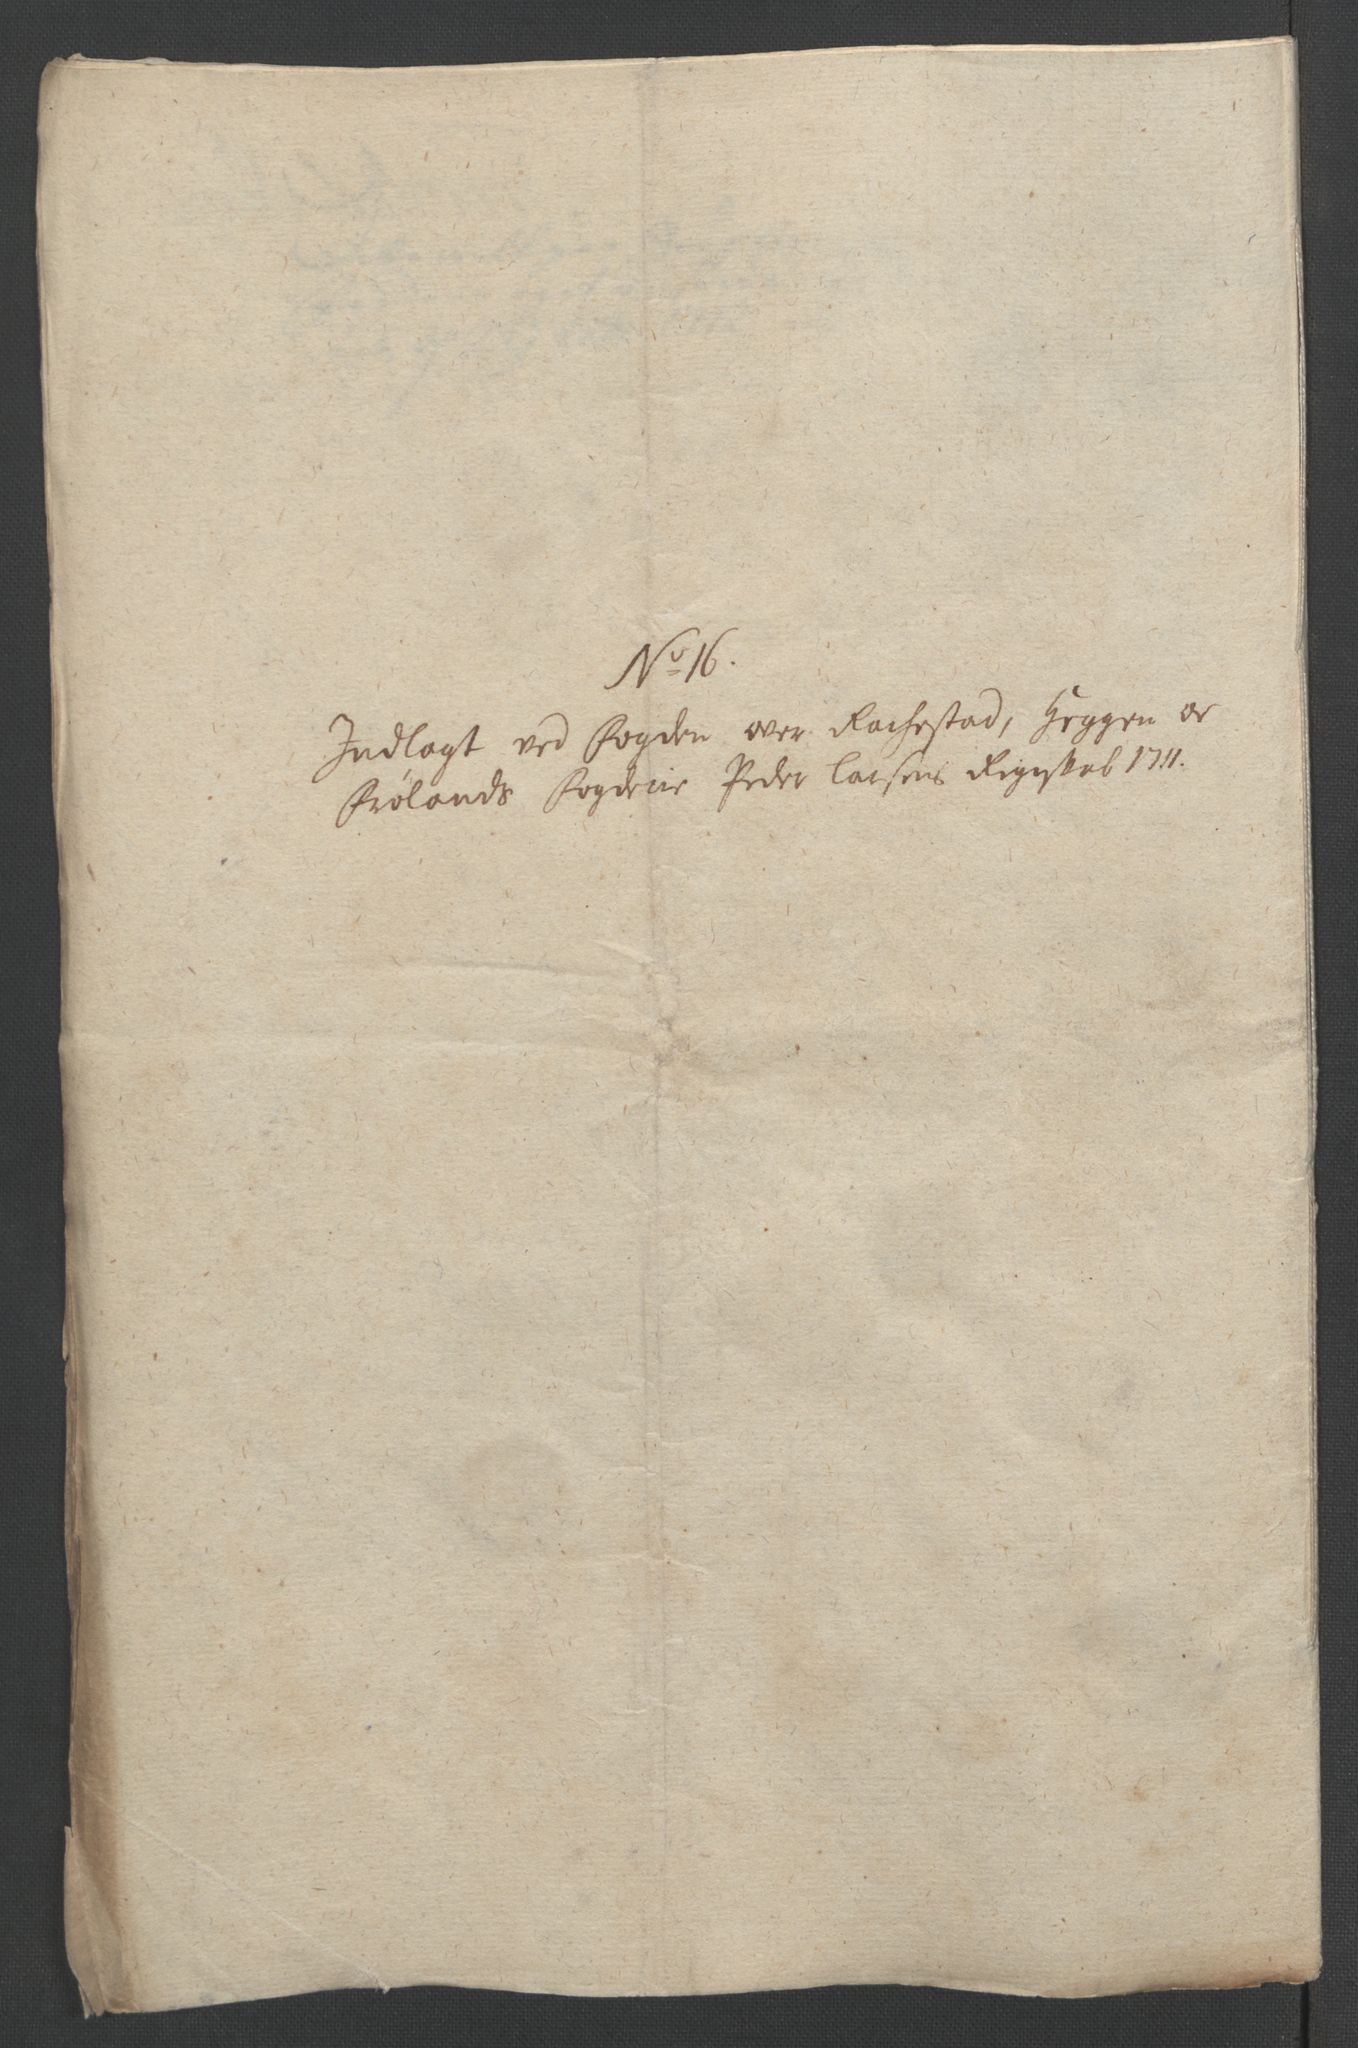 No 16.
Indlagt ved Fogden over Rachestad, Heggen oc
Frølands Fogderie Peder Larsens Rignskab 1711.